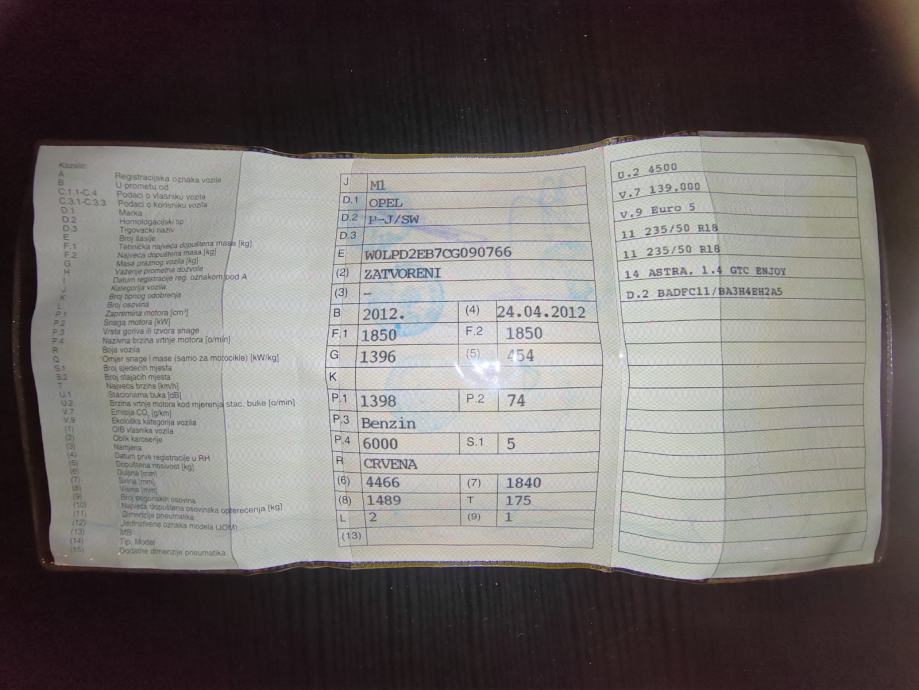 Kazalo:
A Registracijska oznaka vozila
B U prometu od
C.1.1-C.4 Podaci o vlasniku vozila
C.3.1-C.3.3 Podaci o korisniku vozila
D.1 Marka
D.2 Homologacijski tip
D.3 Trgovački naziv
E Broj šasije
F.1 Tehnička najveća dopuštena masa [kg]
F.2 Najveća dopuštena masa [kg]
G Masa praznog vozila [kg]
H Važenje prometne dozvole
I Datum registracije reg. oznakom pod A
J Kategorija vozila
K Broj tipnog odobrenja
L Broj osovina
P.1 Zapremina motora [cm³]
P.2 Snaga motora [kW]
P.3 Vrsta goriva ili izvora snage
P.4 Nazivna brzina vrtnje motora [o/min]
R Boja vozila
Q Omjer snage i mase (samo za motocikle) [kW/kg]
S.1 Broj sjedećih mjesta
S.2 Broj stajaćih mjesta
T Najveća brzina [km/h]
U.1 Stacionarna buka [dB]
U.2 Brzina vrtnje motora kod mjerenja stac. buke [o/min]
V.7 Emisija CO₂ [g/km]
V.9 Ekološka kategorija vozila
(1) OIB vlasnika vozila
(2) Oblik karoserije
(3) Namjena
(4) Datum prve registracije u RH
(5) Dopuštena nosivost [kg]
(6) Duljina [mm]
(7) Širina [mm]
(8) Visina [mm]
(9) Broj pogonskih osovina
(10) Najveća dopuštena osovinska opterećenja [kg]
(11) Dimenzije pneumatika
(12) Jedinstvena oznaka modela (JOM)
(13) MB
(14) Tip, Model
(15) Dodatne dimenzije pneumatika
J M1
D.1 OPEL
D.2 P-J/SW
D.3
E W0LPD2EB7CG090766
(2) ZATVORENI
(3) -
B 2012. (4) 24.04.2012
F.1 1850 F.2 1850
G 1396 (5) 454
K
P.1 1398 P.2 74
P.3 Benzin
P.4 6000 S.1 5
R CRVENA
(6) 4466 (7) 1840
(8) 1489 T 175
L 2 (9) 1
(13)
U.2 4500
V.7 139,000
V.9 Euro 5
11 235/50 R18
11 235/50 R18
14 ASTRA, 1.4 GTC ENJOY
D.2 BADFC11/BA3H4EH2A5